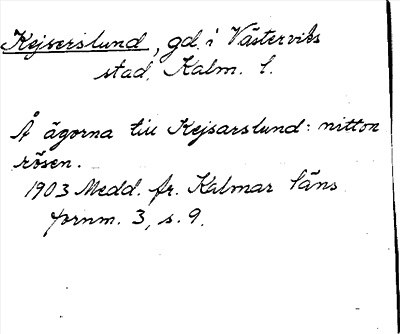 Kejserslund, gd. i Västerviks
stad, Kalm. l.
Å ägorna till Kejsarslund: nitton
rösen.
1903 Medd. fr. Kalmar läns
fornm. 3, s. 9.